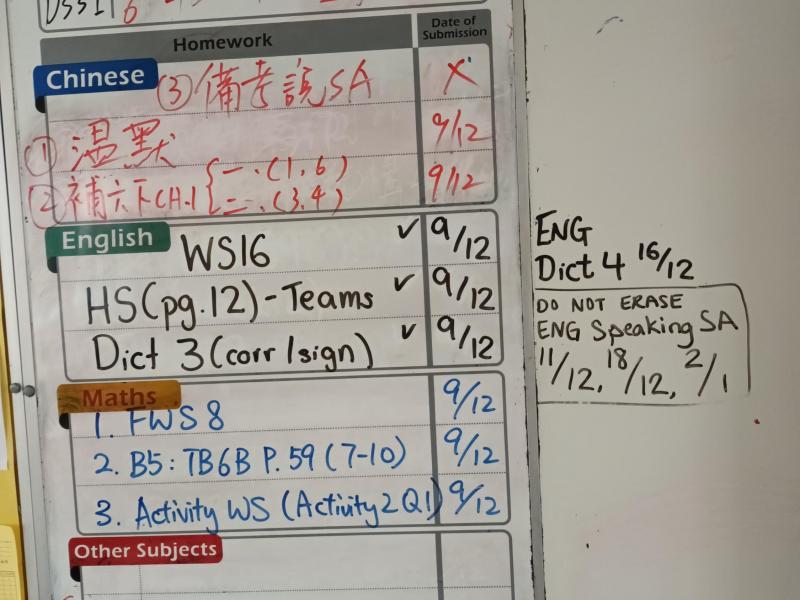 Homework
Date of Submission
Chinese
③ 備考說SA X
① 溫默 9/12
② 補六下CH.1 { 一.(1,6) 二.(3,4) 9/12
English
WS16 ✓ 9/12
HS(pg.12)-Teams ✓ 9/12
Dict 3(corr/sign) ✓ 9/12
Maths
1. FWS 8 9/12
2. B5: TB6B P.59 (7-10) 9/12
3. Activity WS (Activity2 Q1) 9/12
Other Subjects
ENG
Dict 4 16/12
DO NOT ERASE
ENG Speaking SA
11/12, 18/12, 2/1